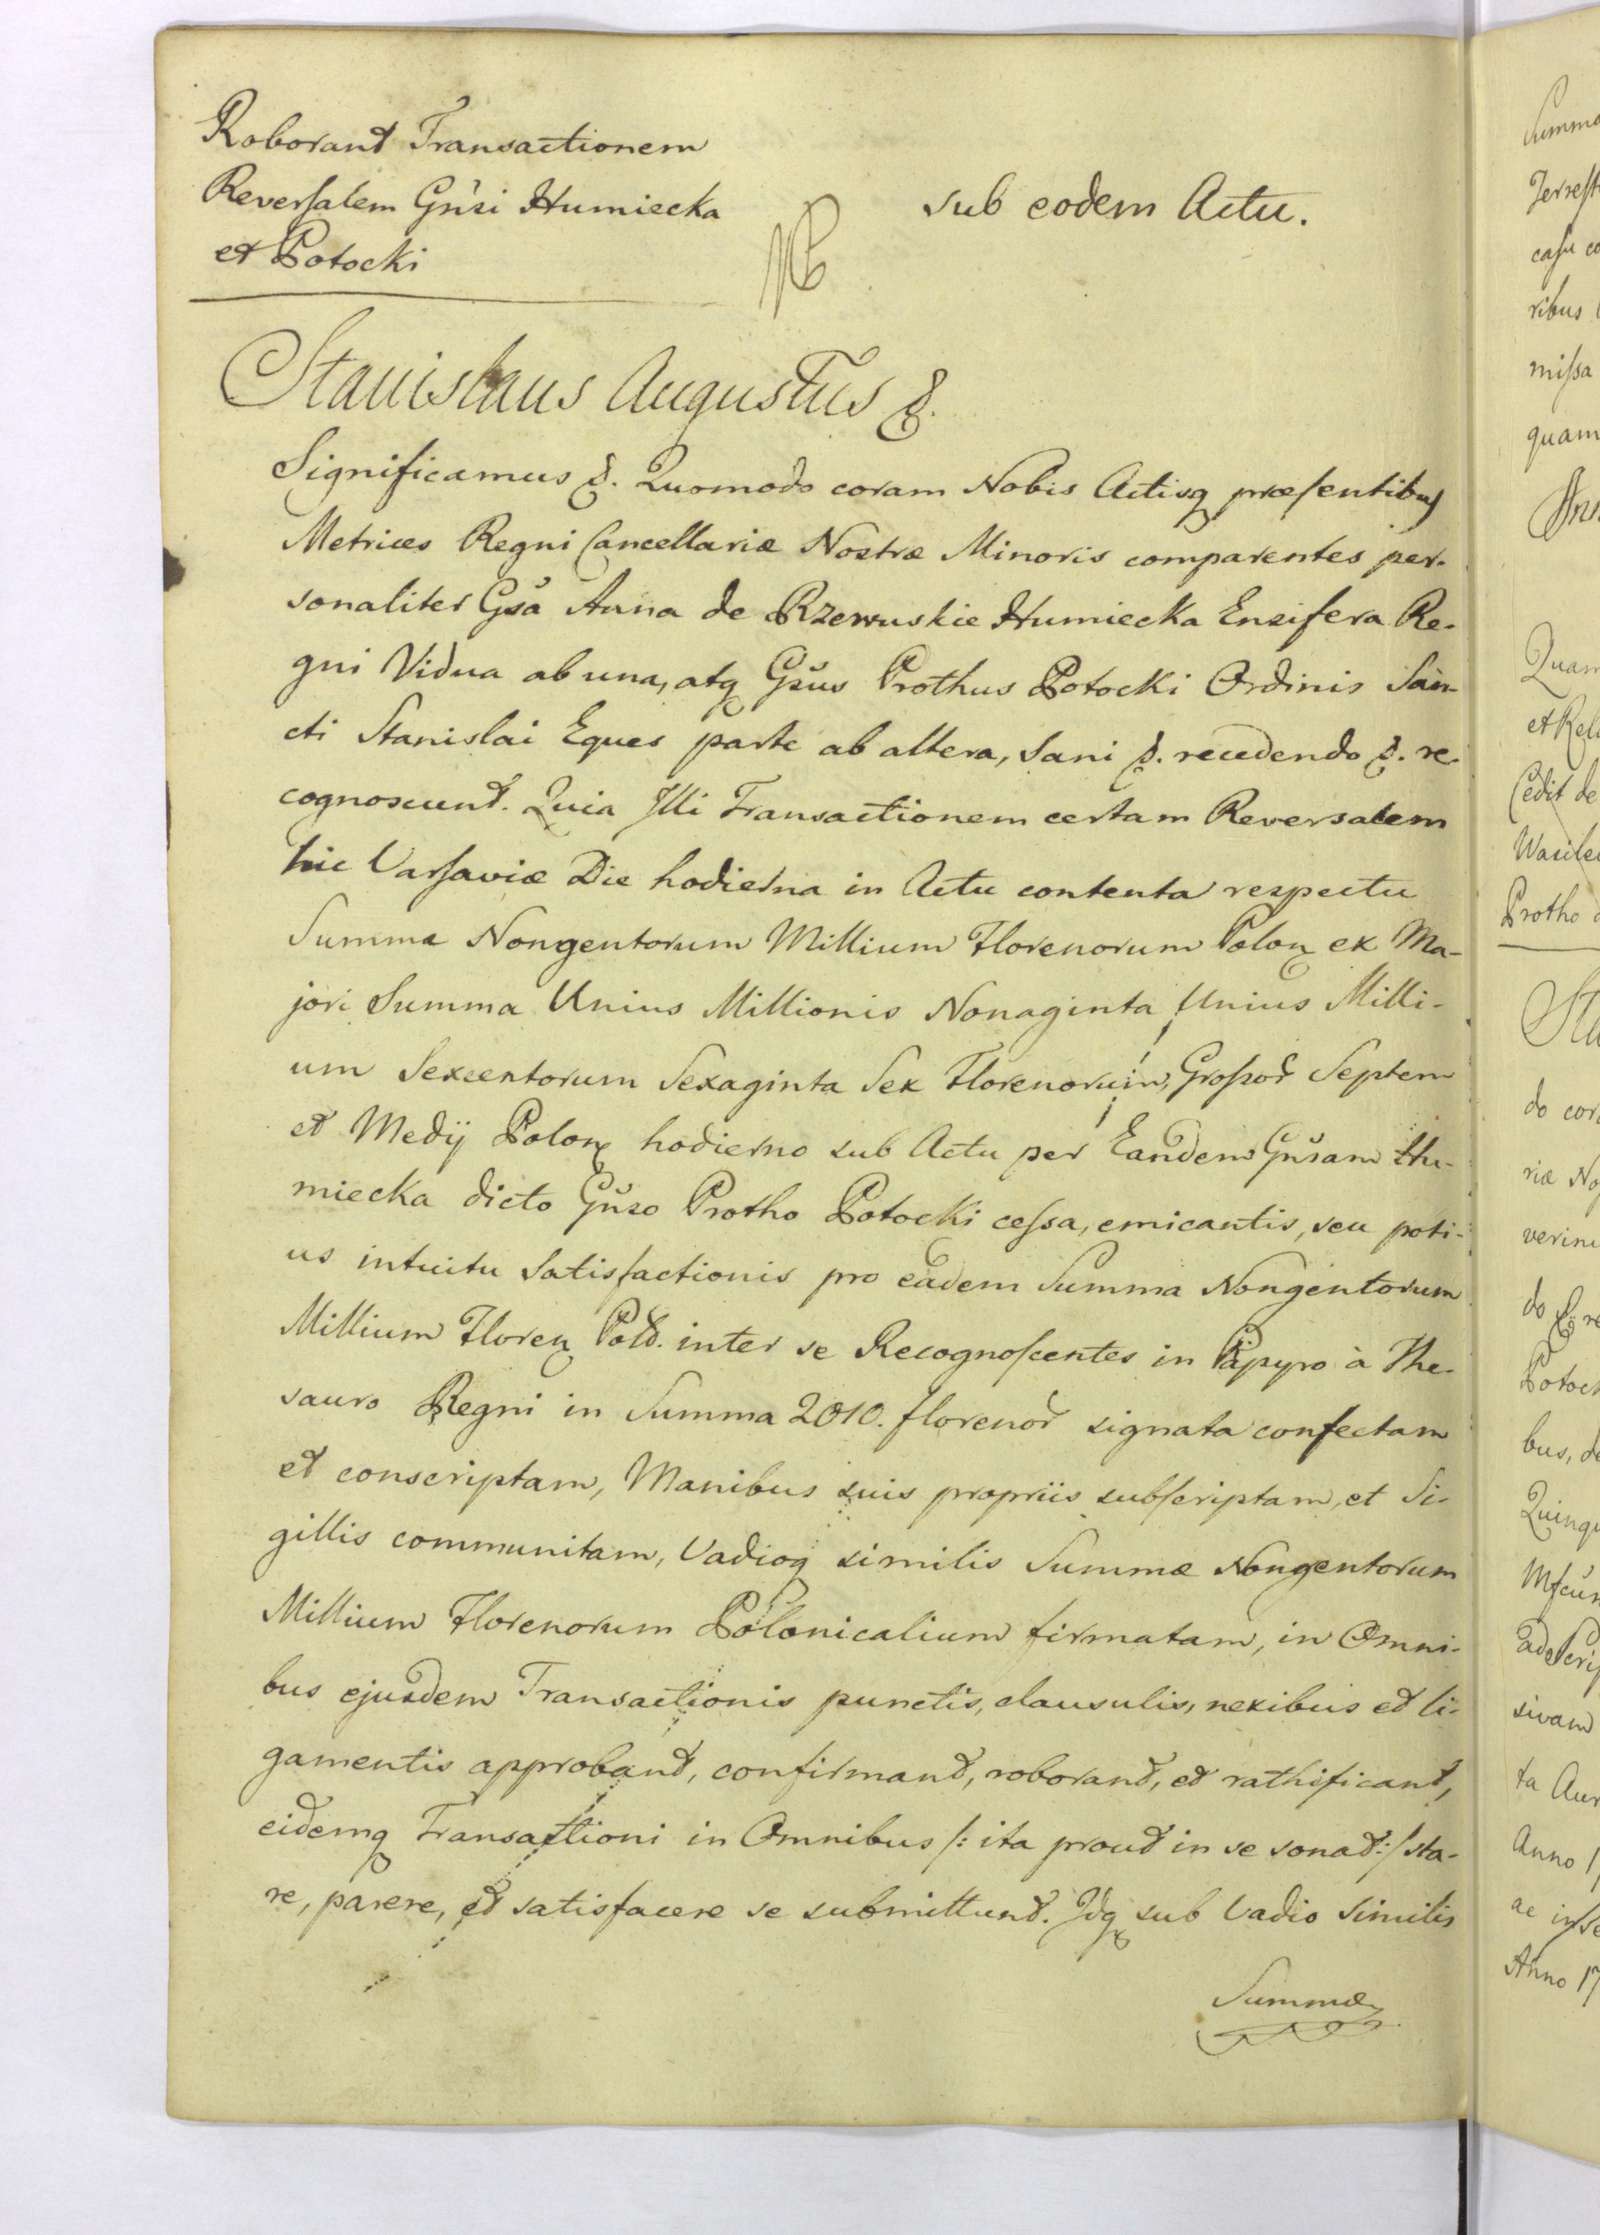 Roborant Transactionem
Reversalem Gnsi Humiecka
et Potocki
sub eodem Actu.
Stanislaus Augustus &.
Significamus &. Quomodo coram Nobis Actisq præsentibus
Metrices Regni Cancellariæ Nostræ Minoris comparentes per-
sonaliter Gsa Anna de Rzewuskie Humiecka Ensifera Re-
gni Vidua ab una, atq Gsus Prothus Potocki Ordinis San-
cti Stanislai Eques parte ab altera, Sani &. recedendo &. re-
cognoscunt. Quia Illi Transactionem certam Reversalem
hic Varsaviæ Die hodierna in Actu contenta respectu
Summa Nongentorum Millium Florenorum Polon ex Ma-
jori Summa Unius Millionis Nonaginta Unius Milli-
um Sexcentorum Sexaginta Sex Florenorum, Grossor Septem
et Medij Polon hodierno sub Actu per Eandem Gnsam Hu-
miecka dicto Gnso Protho Potocki cessa, emicantis, seu poti-
us intuitu Satisfactionis pro eadem Summa Nongentorum
Millium Floren Pold. inter se Recognoscentes in Papyro à The-
sauro Regni in Summa 2010. florenor signata confectam
et conscriptam, Manibus suis propriis subscriptam, et Si-
gillis communitam, Vadioq similis Summæ Nongentorum
Millium Florenorum Polonicalium firmatam, in Omni-
bus ejusdem Transactionis punctis, clausulis, nexibus et li-
gamentis approbant, confirmant, roborant, et rathificant,
eidemq Transactioni in Omnibus /: ita prout in se sonat :/ sta-
re, parere, et satisfacere se submittunt. Idq sub Vadio Similis
Summæ